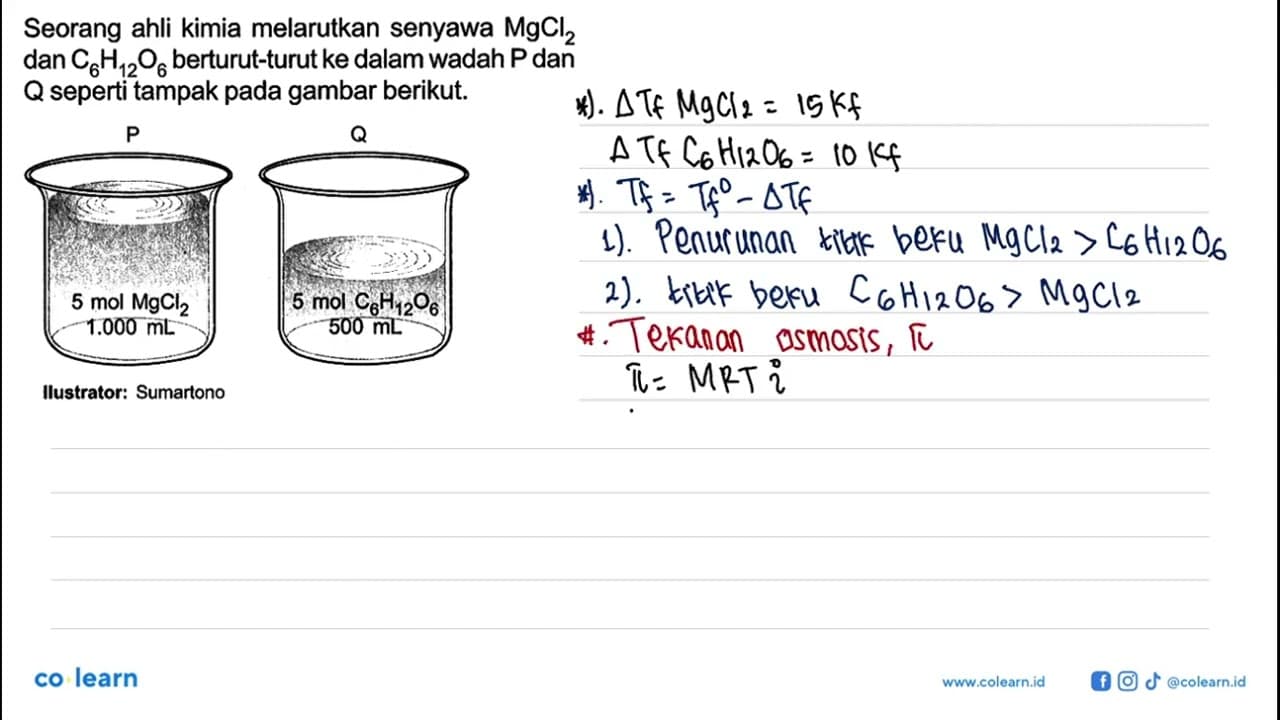 Seorang ahli kimia melarutkan senyawa MgCl₂
dan C₆H₁₂O₆ berturut-turut ke dalam wadah P dan
Q seperti tampak pada gambar berikut.
P
Q
5 mol MgCl₂
1.000 mL
5 mol C₆H₁₂O₆
500 mL
Ilustrator: Sumartono
*). ΔTf MgCl₂ = 15 Kf
ΔTf C₆H₁₂O₆ = 10 Kf
*). Tf = Tf⁰ - ΔTf
1). Penurunan titik beku MgCl₂ > C₆H₁₂O₆
2). titik beku C₆H₁₂O₆ > MgCl₂
#. Tekanan osmosis, π
π = MRT i
co learn
www.colearn.id
@colearn.id